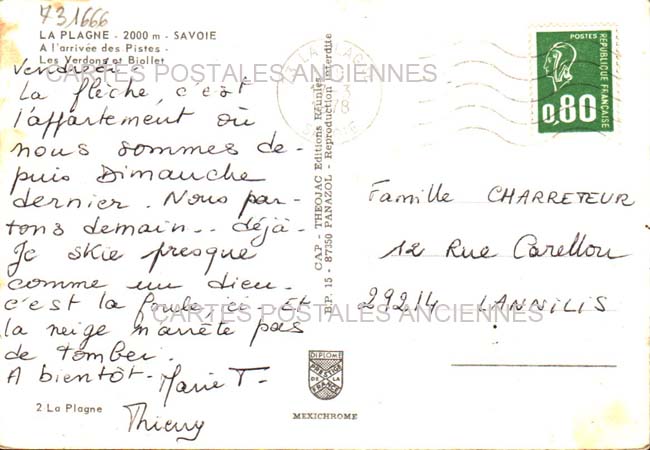 731666
LA PLAGNE - 2000 m - SAVOIE
A l'arrivée des Pistes -
Les Verdons et Biollet
CARTES POSTALES ANCIENNES
Vendredi -
La flèche, c'est
l'appartement où
nous sommes de-
puis Dimanche
dernier. Nous par-
tons demain... déjà-
Je skie presque
comme un dieu.
c'est la foule ici. Et
la neige n'arrête pas
de tomber.
A bientôt - Marie T-
Thierry
2 La Plagne
LA PLAGNE
CAP - THEOJAC Editions Réunies
B.P. 15 - 87350 PANAZOL - Reproduction Interdite
DIPLOME
PRESTIGE
DE LA
FRANCE
MEXICHROME
POSTES
REPUBLIQUE FRANÇAISE
0,80
Famille CHARRETEUR
12 Rue Carellou
29214 LANNILIS
CARTES POSTALES ANCIENNES